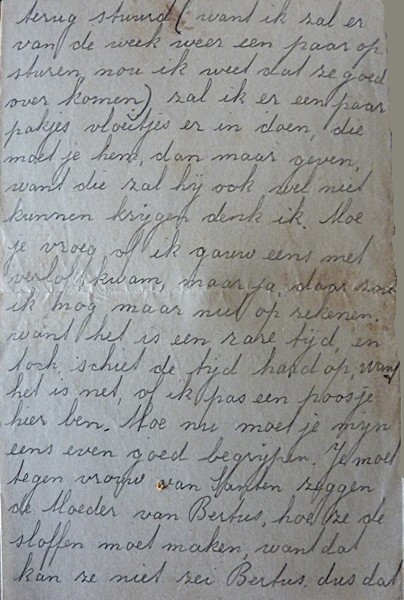 terug stuurd (want ik zal er
van de week weer een paar op
sturen, nou ik weet dat ze goed
over komen) zal ik er een paar
pakjes vloeitjes er in doen, die
moet je hem, dan maar geven,
want die zal hij ook wel niet
kunnen krijgen denk ik. Moe
je vroeg of ik gauw eens met
verlof kwam, maar ja, daar zou
ik nog maar niet op rekenen.
want het is een rare tijd, en
toch, schiet de tijd hard op, want
het is net, of ik pas een poosje
hier ben. Moe nu moet je mijn
eens even goed begrijpen. Je moet
tegen vrouw van Santen zeggen
de Moeder van Bertus, hoe ze de
sloffen moet maken, want dat
kan ze niet zei Bertus. dus dat